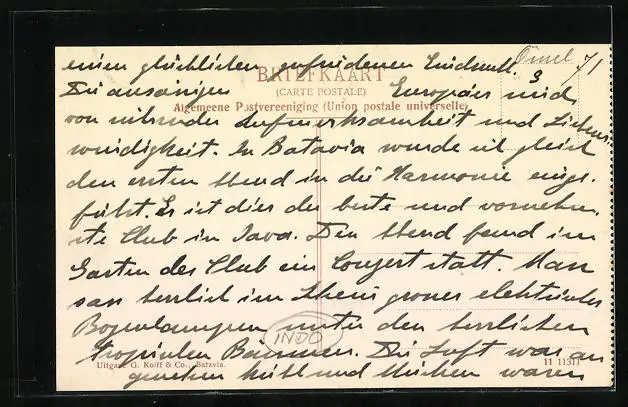 einen glücklichen zufriedenen Eindruck.
BRIEFKAART
(CARTE POSTALE)
Die ansässigen Europäer sind
Algemeene Postvereeniging (Union postale universelle)
von rührender Aufmerksamkeit und Liebens
würdigkeit. In Batavia wurde ich gleich
den ersten Abend in die Harmonie einge.
führt. Es ist dies der beste und vornehm.
ste Club in Java. Den Abend fand im
Garten des Club ein Conzert statt. Man
sass herrlich im Schein grosser elektrischer
Bogenlampen unter den herrlichen
INDO
tropischen Bäumen. Die Luft war an
Uitgave G. Kolff & Co., Batavia. 11 11311
genehm kühl und Mücken waren